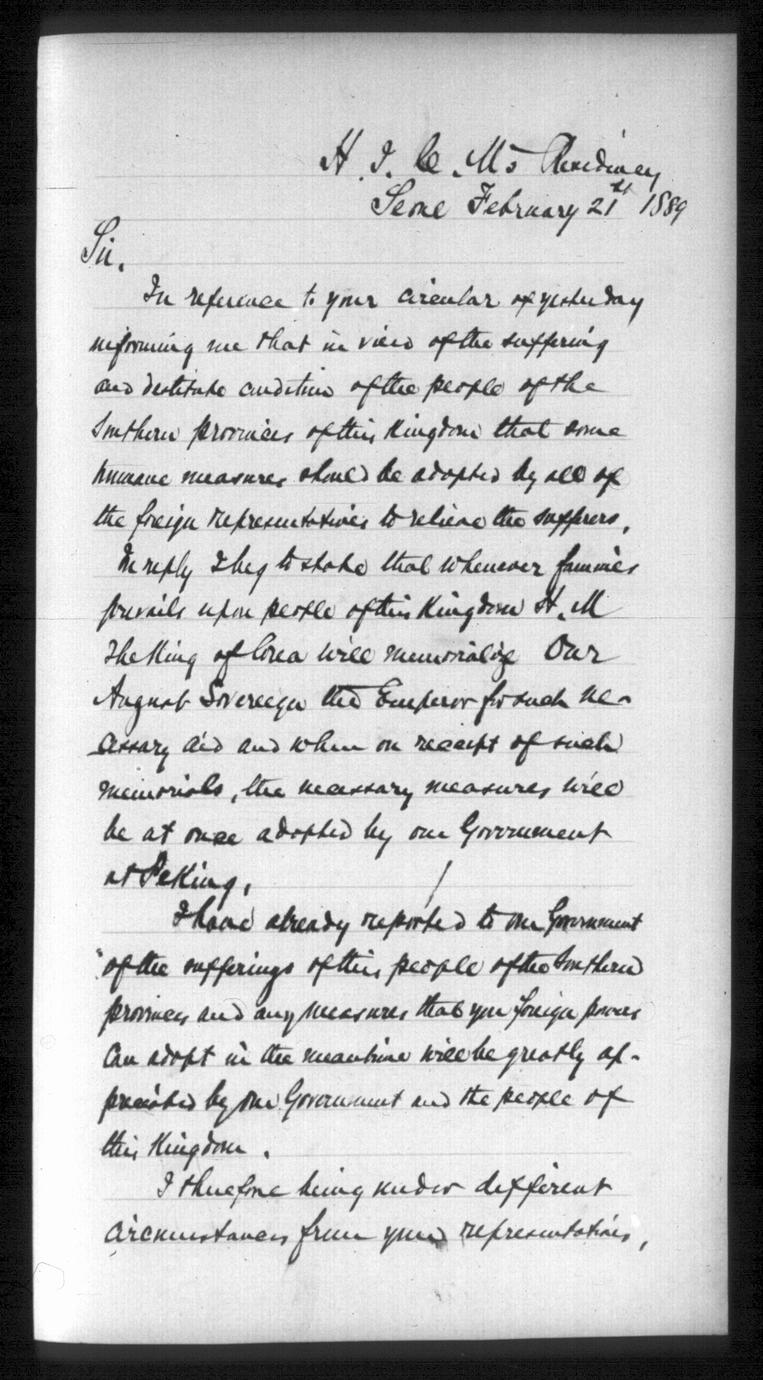 H. I. C. M's Residency
Seoul February 21st 1889
Sir.
In reference to your circular of yesterday
informing me that in view of the suffering
and destitute condition of the people of the
Southern provinces of this Kingdom that some
humane measures should be adopted by all of
the foreign representatives to relieve the sufferers,
In reply I beg to state that whenever famines
prevails upon people of this Kingdom H. M
The King of Corea will memorialize Our
August Sovereign the Emperor for such ne-
cessary aid and when on receipt of such
memorials, the necessary measures will
be at once adopted by our Government
at Peking,
I have already reported to our Government
of the sufferings of this people of the Southern
provinces and any measures that you foreign powers
can adopt in the meantime will be greatly ap-
preciated by our Government and the people of
this Kingdom.
I therefore being under different
circumstances from your representatives,